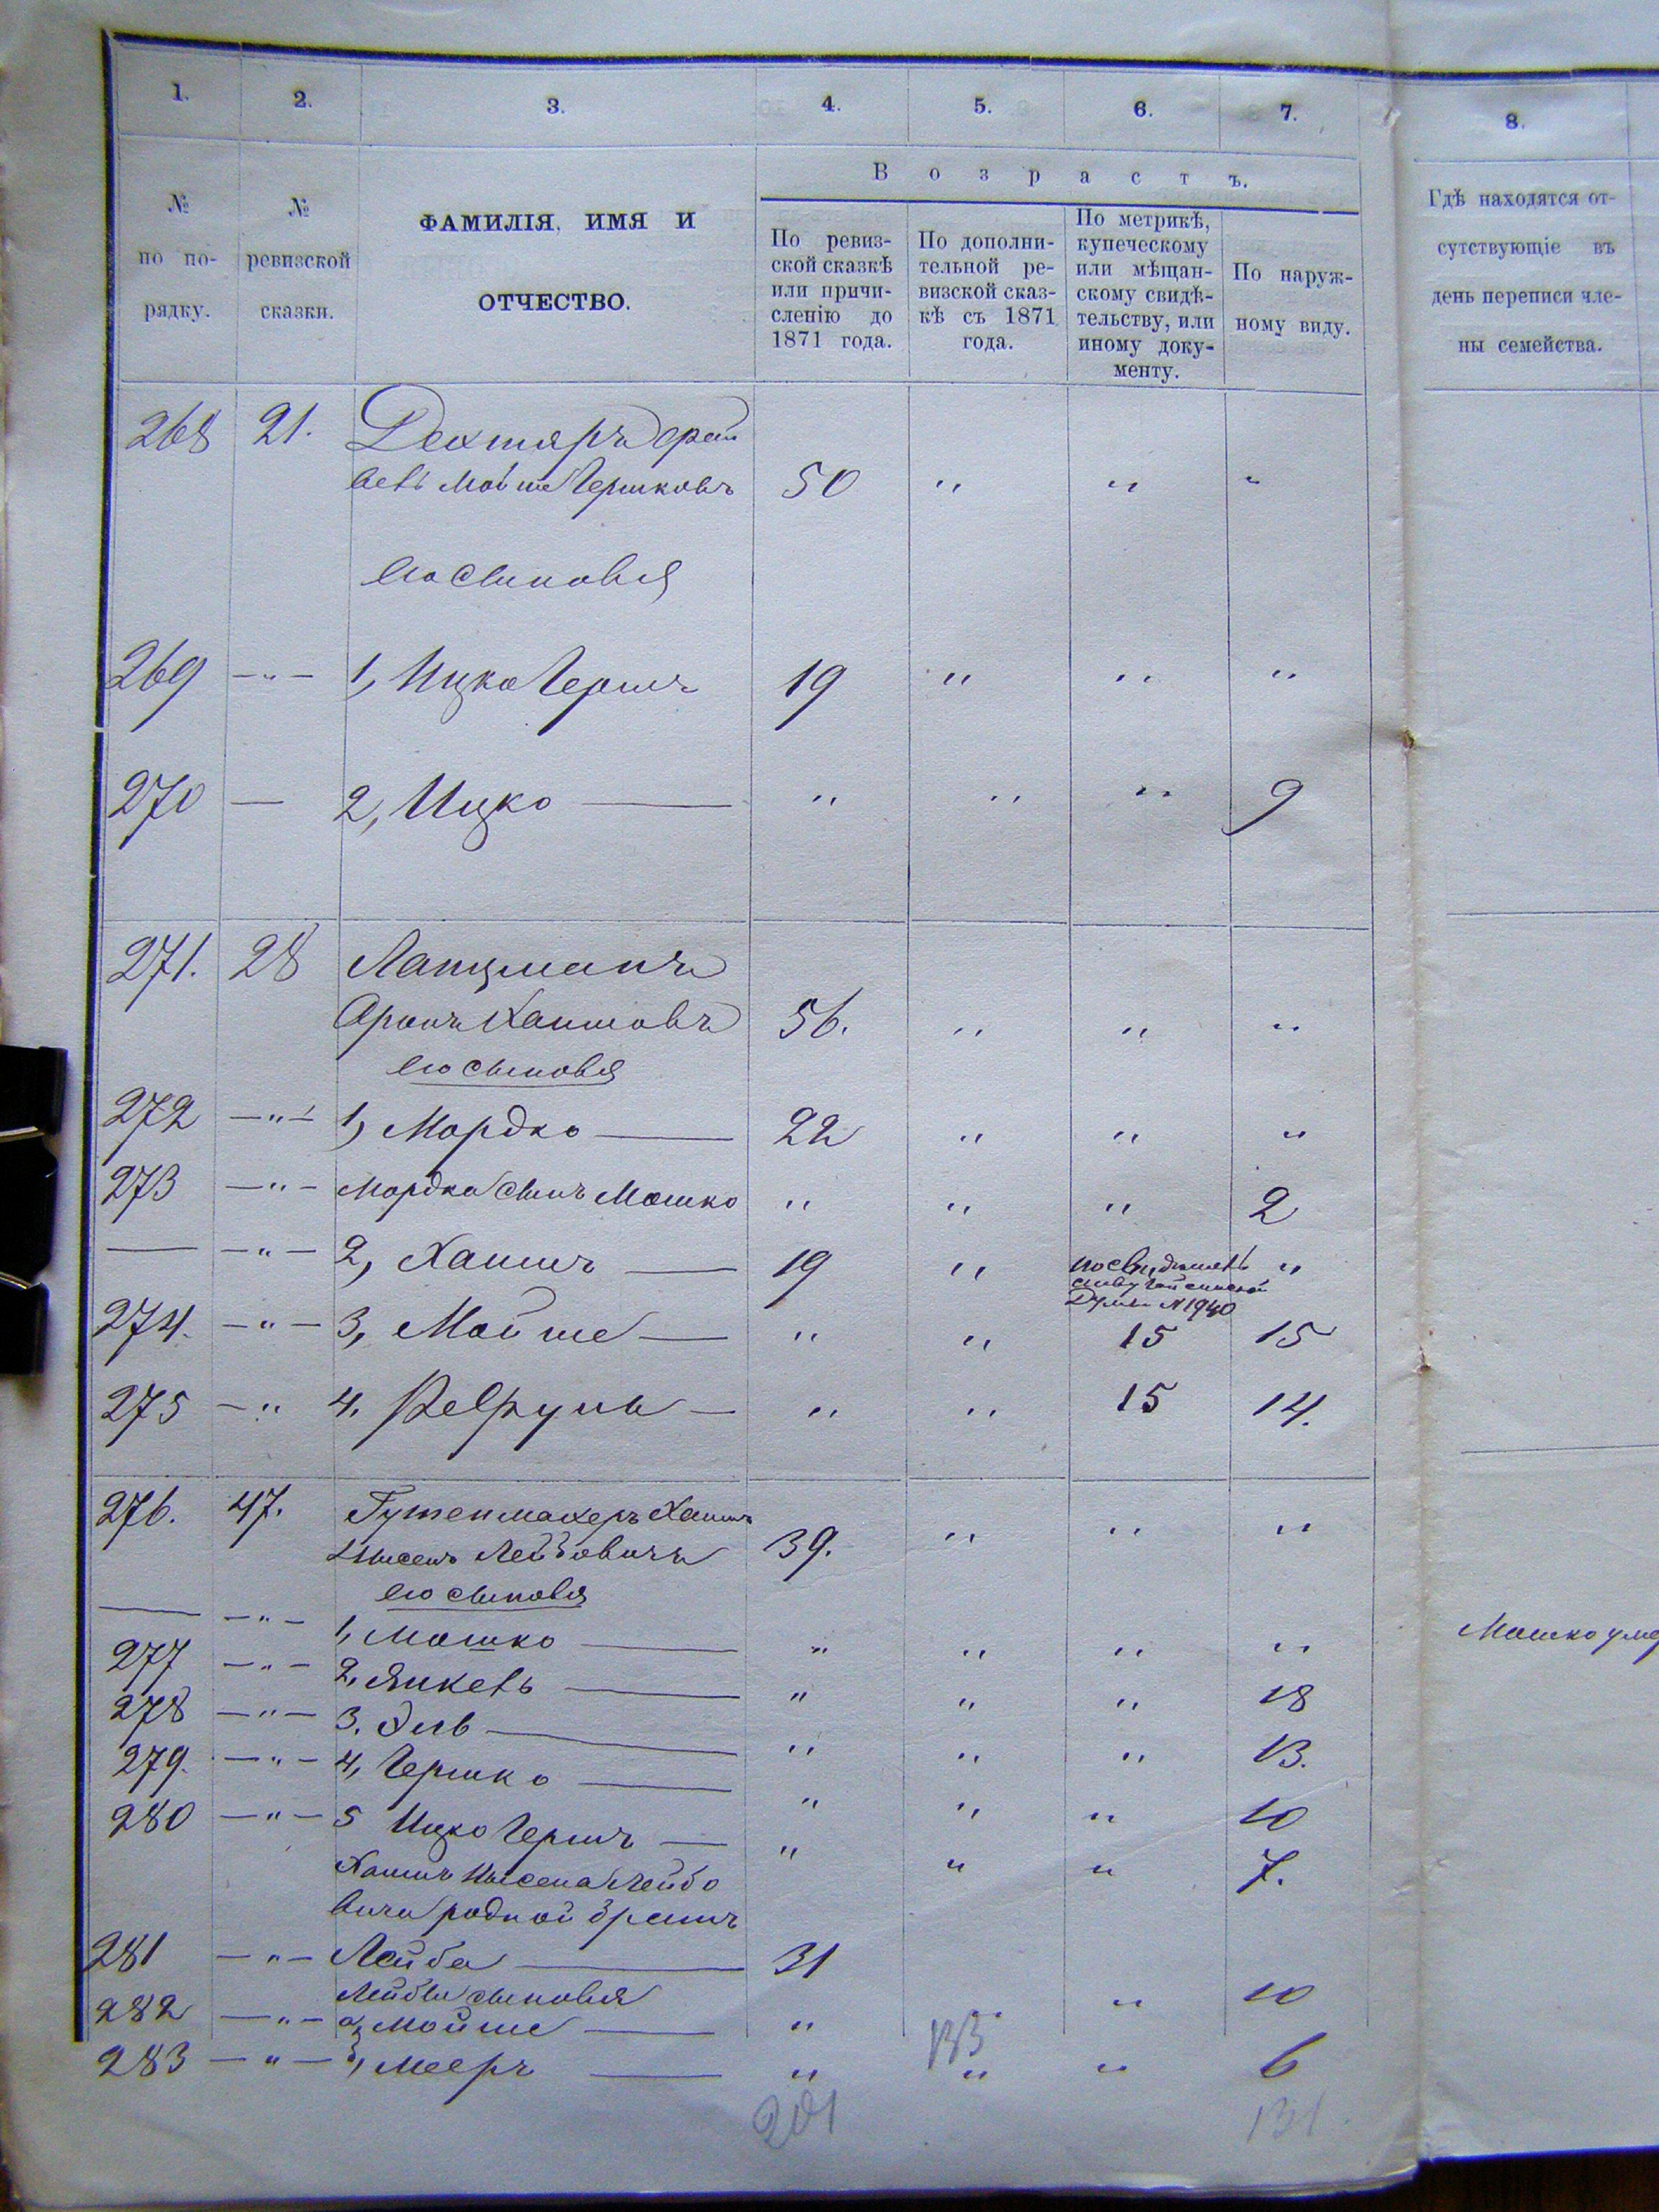 1. 2. 3. 4. 5. 6. 7. 8.
Возрастъ.
№ по по-рядку.
№ ревизской сказки.
ФАМИЛІЯ, ИМЯ И
ОТЧЕСТВО.
По ревиз-
ской сказкѣ
или причи-
сленію до
1871 года.
По дополни-
тельной ре-
визской сказ-
кѣ съ 1871
года.
По метрикѣ,
купеческому
или мѣщан-
скому свидѣ-
тельству, или
иному доку-
менту.
По наруж-
ному виду.
Гдѣ находятся от-
сутствующіе въ
день переписи чле-
ны семейства.
268 21. Дехтяръ Срай
 Мойше Гершковъ 50 " " "
его сыновья
269 —"— 1, Ицко Гершъ 19 " " "
270 — 2, Ицко — " " " 9
271. 28 Ланцманъ
Аронъ Хаимовъ 56. " " "
его сыновья
272 —"— 1, Мордко — 22 " " "
273 —"— Мордка сынъ Мошко " " " 2
— —"— 2, Хаимъ — 19 " по свидѣтель "
ству Гайсинской
Думы №1940
274. —"— 3, Мойше — " " 15 15
275 —" 4. — " " 15 14.
276. 47. Гутенмахеръ Хаимъ
Нысенъ Лейбовичъ 39. " " "
его сыновья
— —"— 1, Мошко — " " " "
277 —"— 2, Янкель — " " " 18
278 —"— 3. — " " " 13.
279. —"— 4, Гершко — " " " 10
280 —"— 5 Ицко Гершъ — " " " 7.
Хаимъ Нысена Лейбо
вича родной братъ
281 —"— Лейба — 31
Лейбы сыновья
282 —"— а, Мойше — " " 10
283 —"— б, Мееръ — " " " 6
Мошко уме
133
201
131